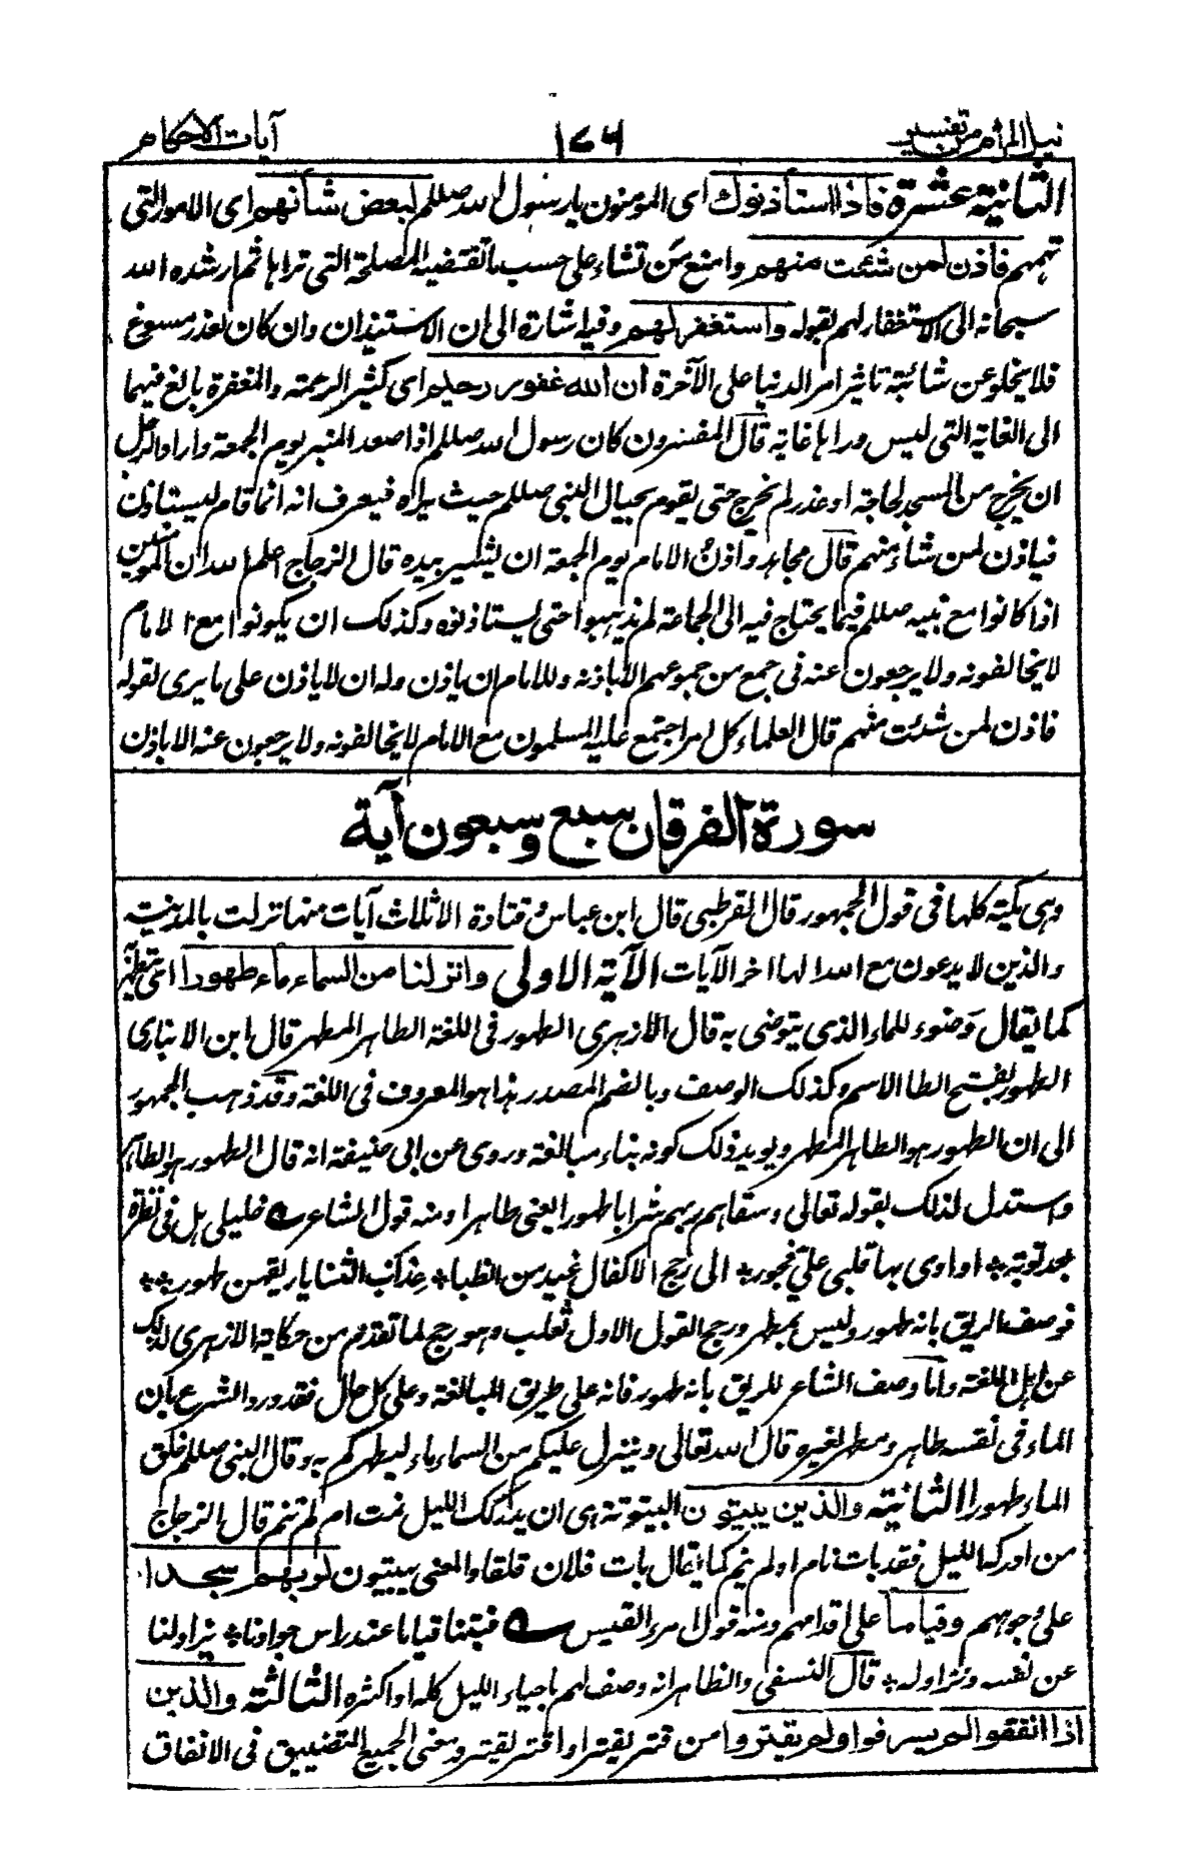 نيل المرام من تفسير ١٧٦ آيات الاحكام
الثانية عشرة فاذا استأذنوك اى المؤمنون يا رسول الله صللم لبعض شأنهم اى الامور التى
تهمهم فاذن لمن شئت منهم وامنع من تشاء على حسب ما تقتضيه المصلحة التى تراها ثم ارشده الله
سبحانه الى الاستغفار لهم بقوله واستغفر لهم وفيه اشارة الى ان الاستيذان وان كان لعذر مسوغ
فلا يخلو عن شائبة تاثير امر الدنيا على الآخرة ان الله غفور رحيم اى كثير الرحمة والمغفرة بالغ فيهما
الى الغاية التى ليس وراها غاية قال المفسرون كان رسول الله صللم اذا صعد المنبر يوم الجمعة واراد الرجل
ان يخرج من المسجد لحاجة او عذر لم يخرج حتى يقوم بحيال النبى صللم حيث يراه فيعرف انه انما قام ليستاذن
فياذن لمن شاء منهم قال مجاهد واذن الامام يوم الجمعة ان يشير بيده قال الزجاج اعلم الله ان المؤمنين
اذا كانوا مع نبيه صللم فيما يحتاج فيه الى الجماعة لم يذهبوا حتى يستاذنوه وكذلك ان يكونوا مع الامام
لا يخالفونه ولا يرجعون عنه فى جمع من جموعهم الا باذنه وللامام ان ياذن وله ان لا ياذن على ما يرى لقوله
فاذن لمن شئت منهم قال العلماء كل امر اجتمع عليه المسلمون مع الامام لا يخالفونه ولا يرجعون عنه الا باذن
سورة الفرقان سبع وسبعون آية
وهى مكية كلها فى قول الجمهور قال القرطبى قال ابن عباس وقتادة الا ثلاث آيات منها نزلت بالمدينة
والذين لا يدعون مع الله الها اخر الآيات الآية الاولى وانزلنا من السماء ماء طهورا اى يتطهر
كما يقال وَضوء للماء الذى يتوضى به قال الازهرى الطهور فى اللغة الطاهر المطهر قال ابن الانبارى
الطهور بفتح الطا الاسم وكذلك الوصف وبالضم المصدر هذا هو المعروف فى اللغة وقد ذهب الجمهور
الى ان الطهور هو الطاهر المطهر ويويد ذلك كونه بناء مبالغة وروى عن ابى حنيفة انه قال الطهور هو الطاهر
واستدل لذلك بقوله تعالى وسقاهم ربهم شرابا طهورا يعنى طاهرا ومنه قول الشاعر خليلى هل فى نظرة
بعد توبة * اداوى بها قلبى علىّ فجور * الى رجح الاكفال غيد من الظبا * عذاب الثنايا ريقهن طهور **
فوصف الريق بانه طهور وليس بمطهر ورجح القول الاول ثعلب وهو رجح لما تقدم من حكاية الازهرى لذلك
عن اهل اللغة واما وصف الشاعر للريق بانه طهور فانه على طريق المبالغة وعلى كل حال فقد ورد الشرع بان
الماء فى نفسه طاهر ومطهر لغيره قال الله تعالى وينزل عليكم من السماء ماء ليطهركم به وقال النبى صللم خلق
الماء طهورا الثانية والذين يبيتون البيتوتة هى ان يدركك الليل نمت ام لم تنم قال الزجاج
من ادركه الليل فقد بات نام او لم ينم كما يقال بات فلان قلقا والمعنى يبيتون لربهم سجدا
على وجوههم وقياما على اقدامهم ومنه قول امرء القيس فبتنا قياما عند راس جوادنا * يزاولنا
عن نفسه ونزاوله * قال النسفى والظاهر انه وصف لهم باحياء الليل كله او اكثره الثالثة والذين
اذا انفقوا لم يسرفوا ولم يقتروا من قتر يقتر او اقتر يقتر ومعنى الجميع التضييق فى الانفاق